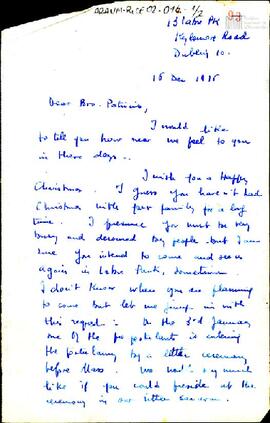 13 Labre Pk
Kylemore Road
Dublin 10.
15 Dec 1985
Dear Bro. Patricio,
I would like
to tell you how near we feel to you
in these days.
I wish you a Happy
Christmas. I guess you haven't had
Christmas with your family for a long
time. I presume you must be very
busy and devoured by people but I am
sure you intend to come and see us
again in Labre Park, sometime.
I don't know where you are planning
to come but let me jump in with
this request: On the 3rd January
one of the postulants is entering
the postulancy by a little ceremony
before Mass. We would very much
like if you could preside at this
ceremony in our